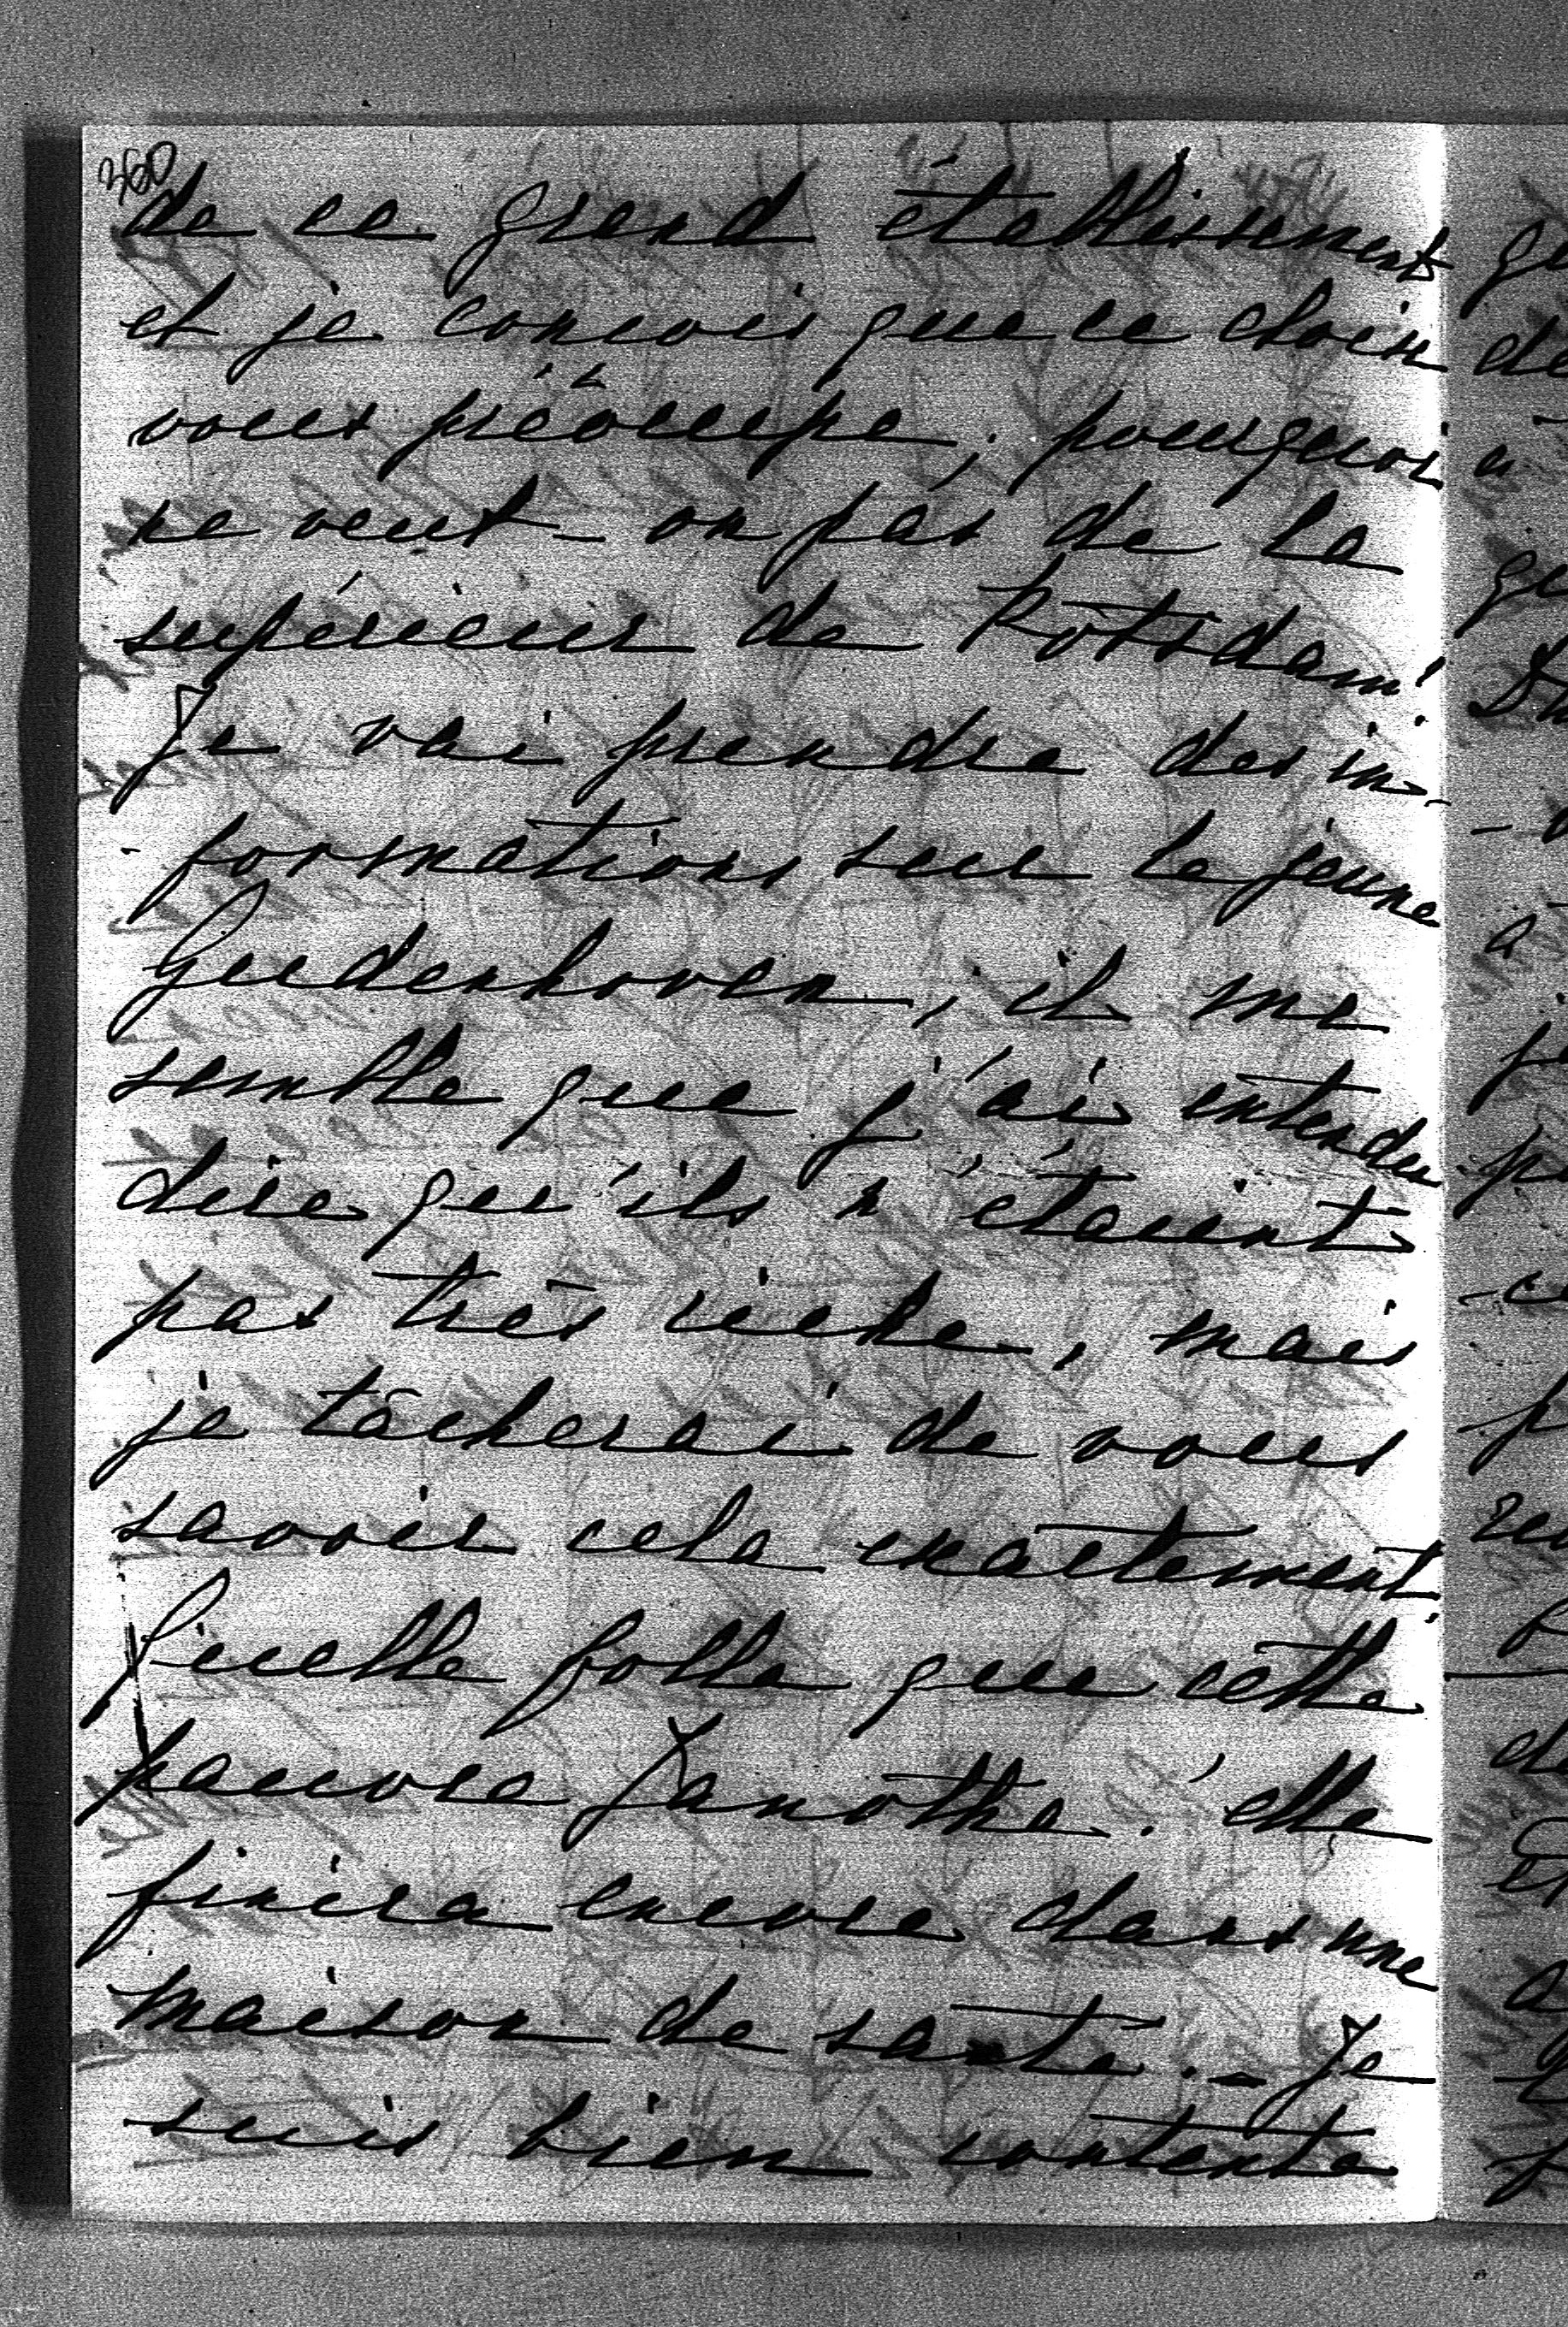 360
de ce grand établissement
et je conçois que ce choix
vous préoccupe, pourquoi
ne veut-on pas de la
supérieur de Potsdam!
Je vai prendre des in-
-formations sur le jeune
Gudenhoven, il me
semble que j'ai entendu
dire qu'ils n'étaient
pas très riche, mais
je tâcherai de vous
savoir cela exactement.
Quelle folle que cette
pauvre Janothe! elle
finira encore dans une
maison de santé. – Je
suis bien contente